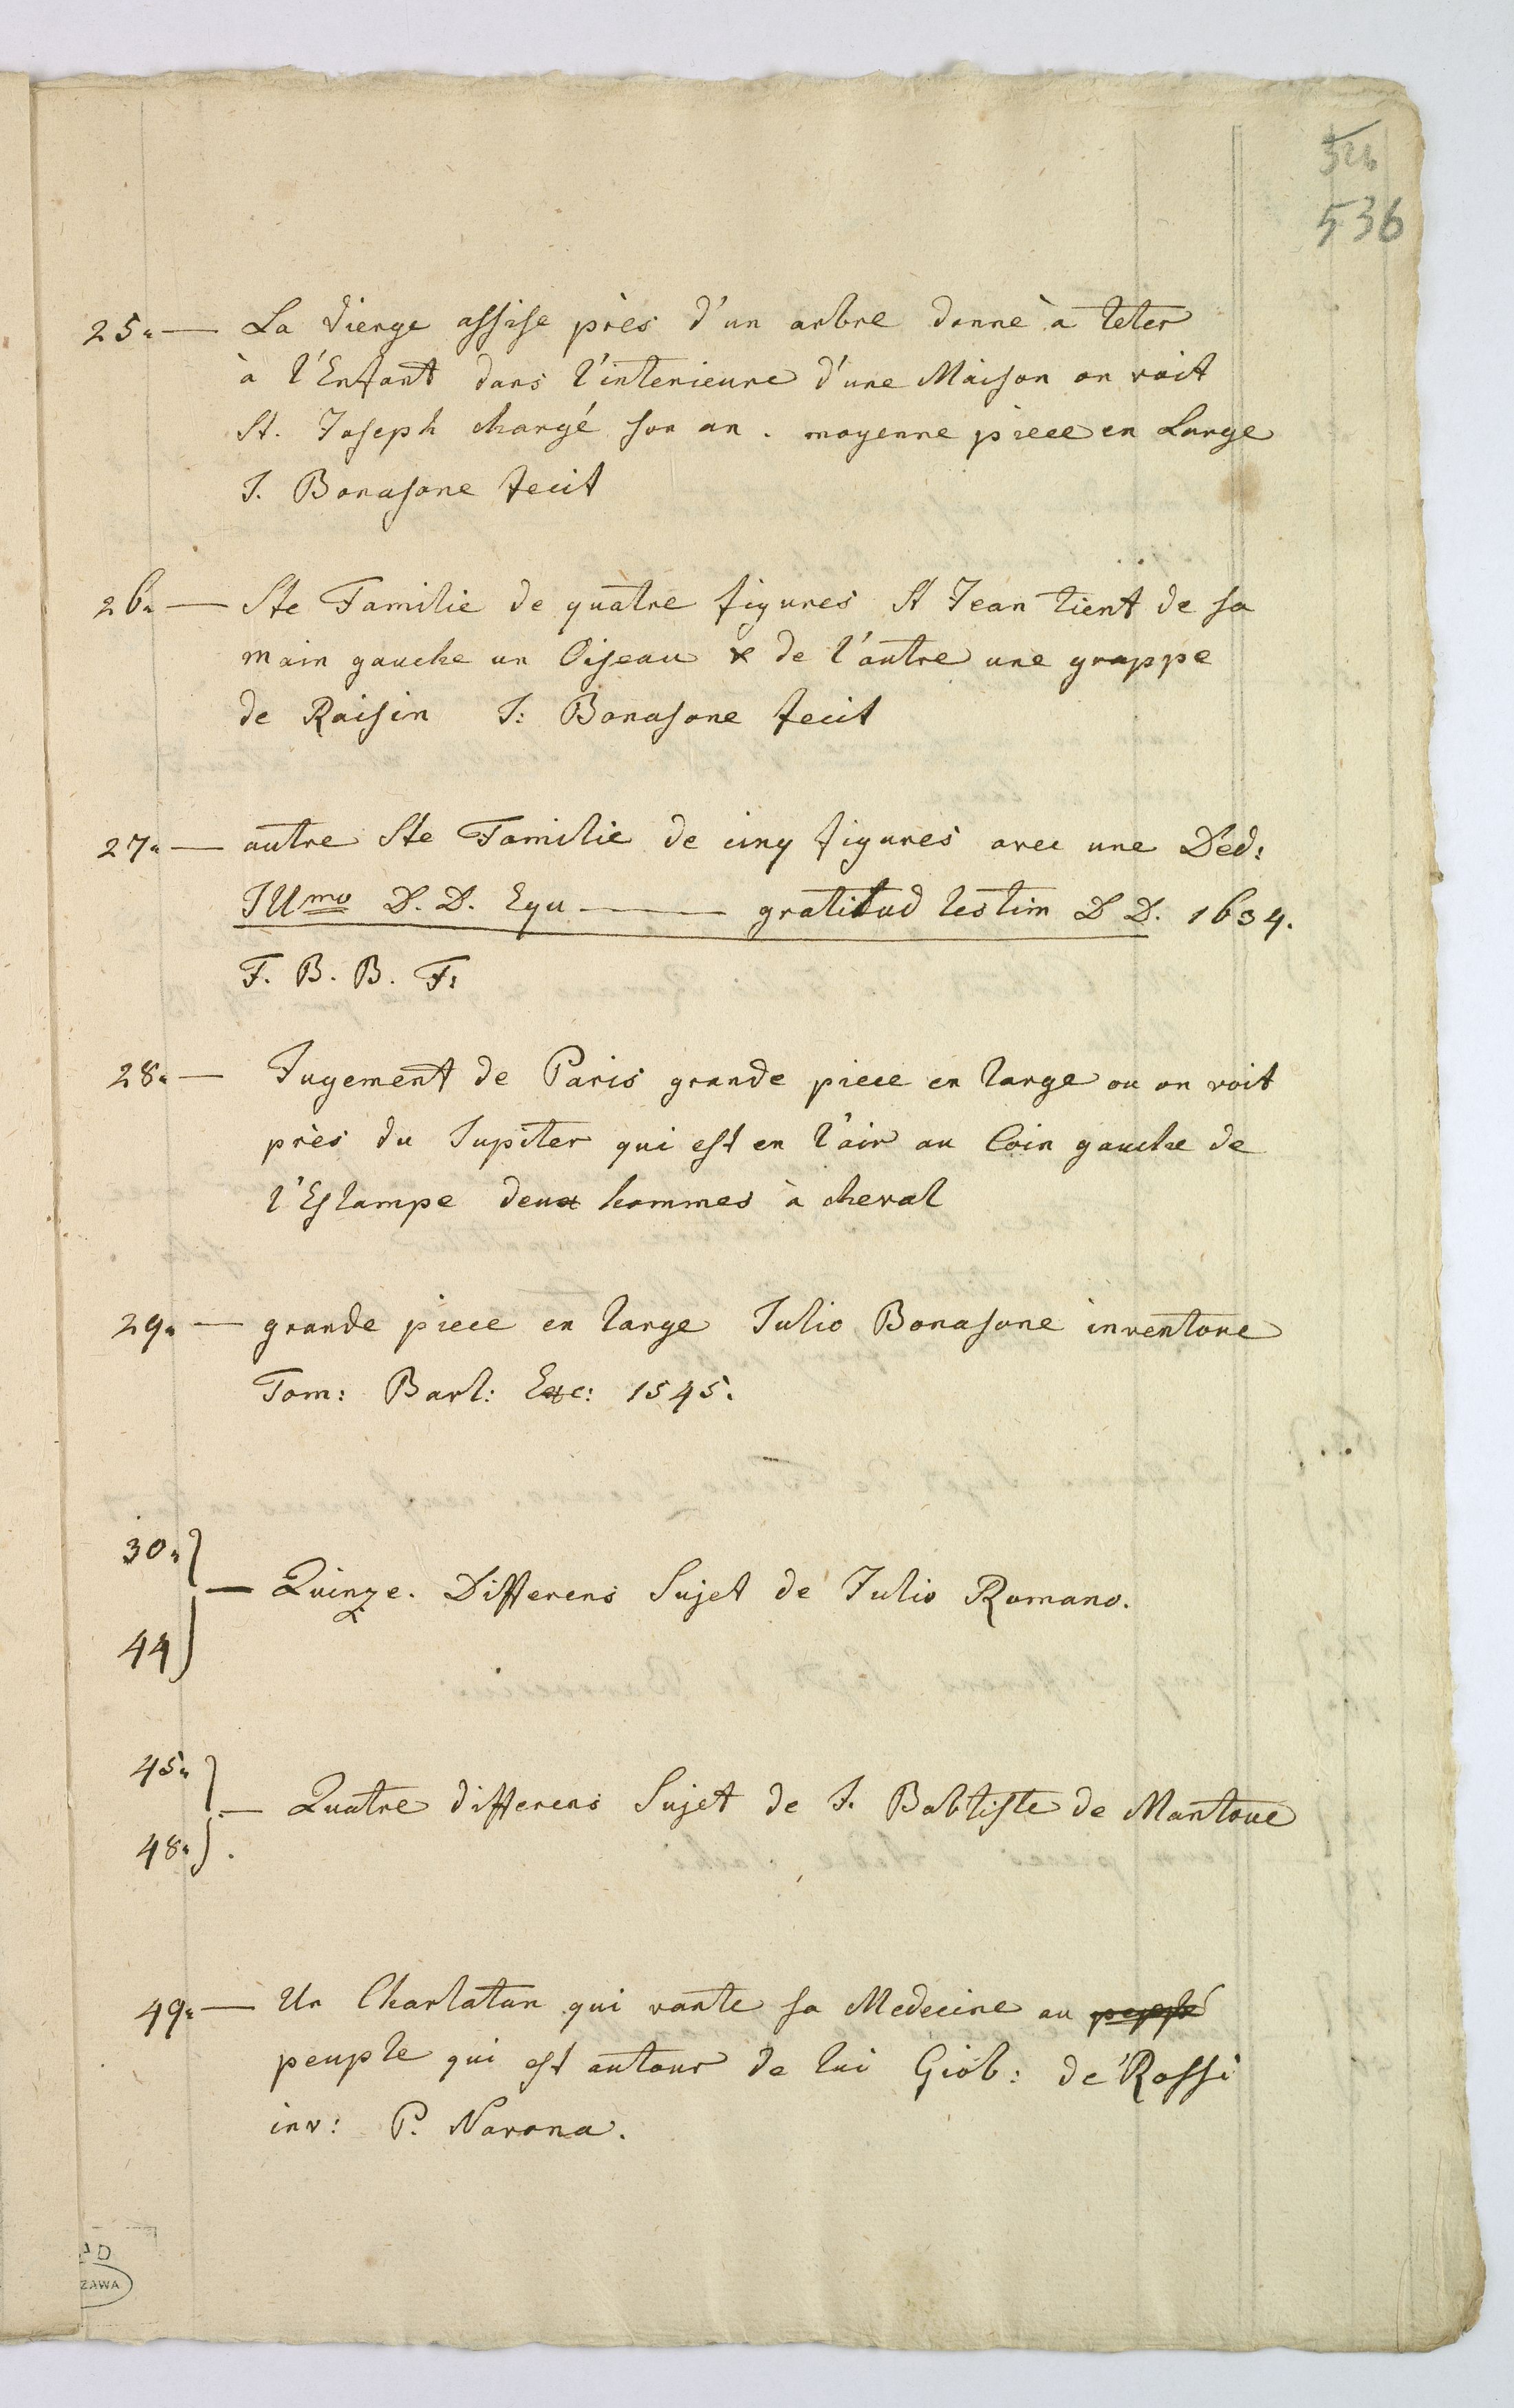 536
25. — La Vierge assise près d'un arbre donne à teter
à l'Enfant dans l'interieure d'une Maison on voit
St. Joseph chargé son an. moyenne piece en Large
J. Bonasone fecit
26. — Ste Familie de quatre figures St Jean tient de sa
main gauche un Oiseau & de l'autre une grappe
de Raisin J: Bonasone fecit
27. — autre Ste Familie de cinq figures avec une Ded:
Illmo D. D. Equ — gratitud testim D D. 1634.
F. B. B. F:
28. — Jugement de Paris grande piece en large ou on voit
près du Jupiter qui est en l'air au Coin gauche de
l'Estampe deux hommes à cheval
29. — grande piece en large Julio Bonasone inventore
Tom: Barl: Exc: 1545.
30.
— Quinze. Differens Sujet de Julio Romano.
44
45.
— Quatre differens Sujet de J. Babtiste de Mantoue
48.
49. — Un Charlatan qui vante sa Medecine au
peuple qui est autour de lui Giob: de Rossi
inv: P. Narona.